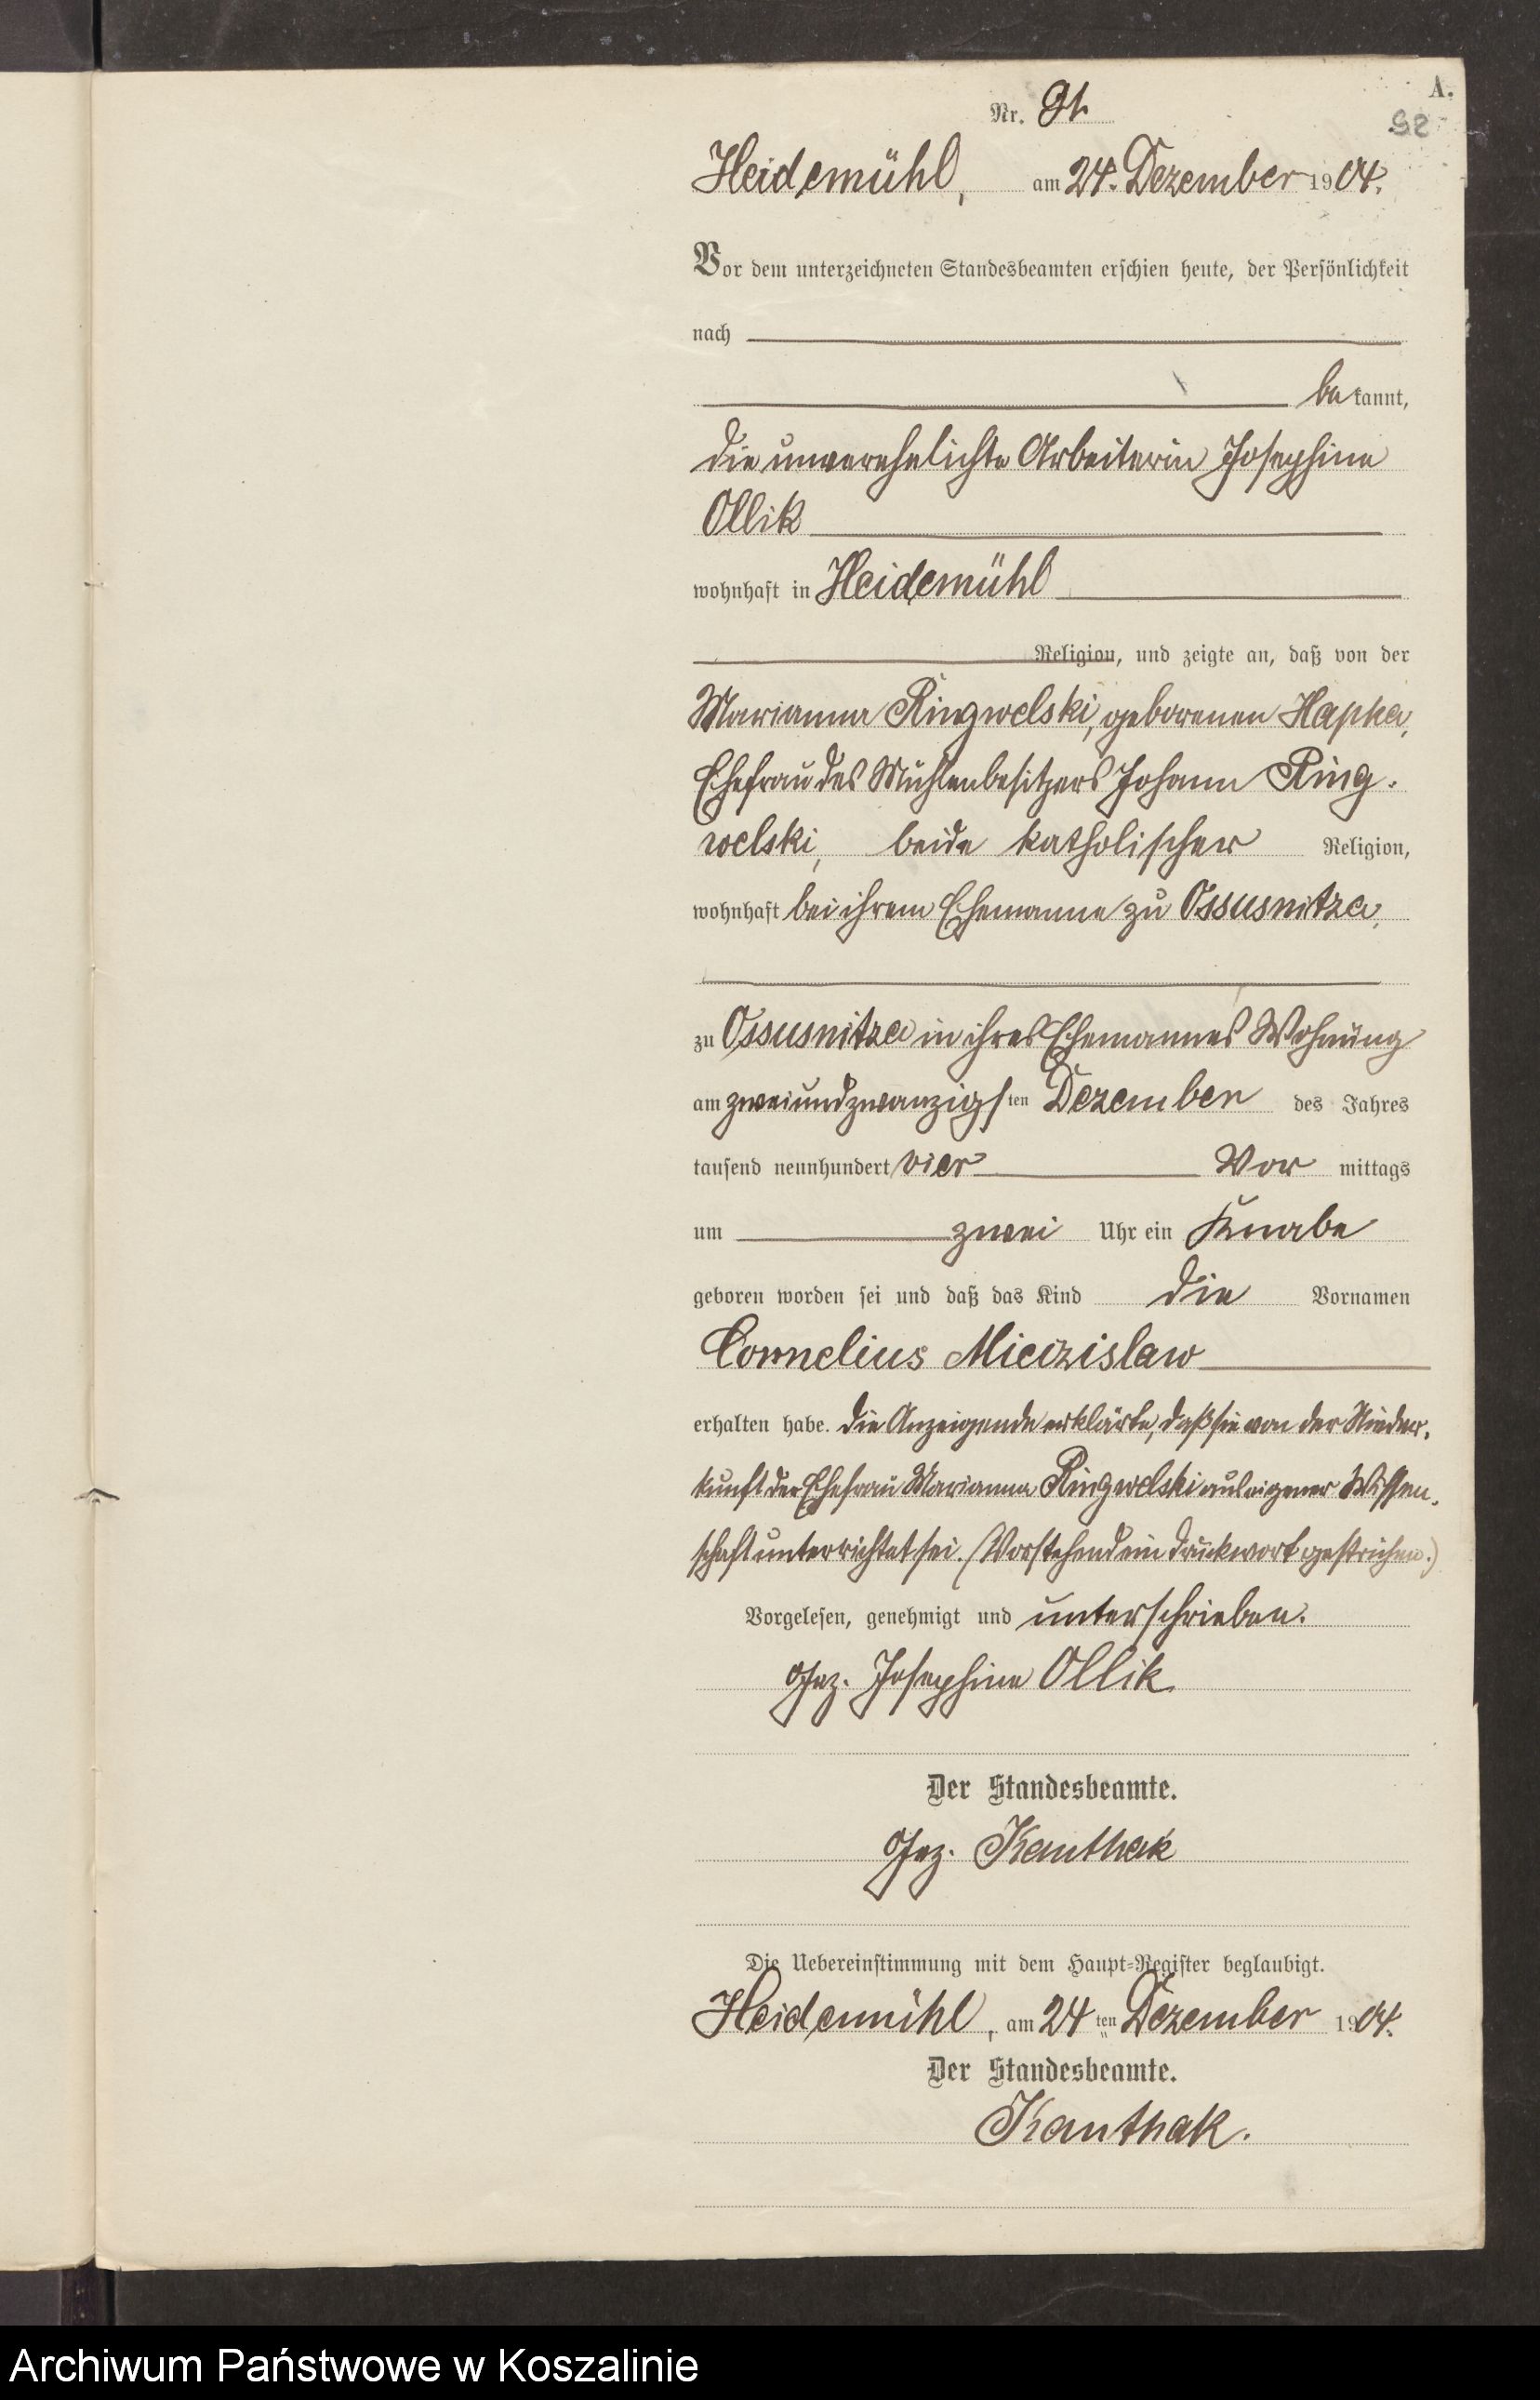 A.
Nr. 91.
92
Heidemühl, am 24. Dezember 1904.
Vor dem unterzeichneten Standesbeamten erschien heute, der Persönlichkeit
nach
be kannt,
die unverehelichte Arbeiterin Josephine
Ollik
wohnhaft in Heidemühl
Religion, und zeigte an, daß von der
Marianna Ringwelski, geborenen Hapka,
Ehefrau des Mühlenbesitzers Johann Ring-
welski, beide katholischer Religion,
wohnhaft bei ihrem Ehemanne zu Ossusnitza,
zu Ossusnitza in ihres Ehemannes Wohnung
am zweiundzwanzigsten Dezember des Jahres
tausend neunhundert vier Vor mittags
um zwei Uhr ein Knabe
geboren worden sei und daß das Kind die Vornamen
Cornelius Miecizislaw
erhalten habe. Die Anzeigende erklärte, daß sie von der Nieder-
kunft der Ehefrau Marianna Ringwelski aus eigener Wissen-
schaft unterrichtet sei. (Vorstehend ein Druckwort gestrichen.)
Vorgelesen, genehmigt und unterschrieben.
Gez. Josephine Ollik
Der Standesbeamte.
Gez. Kanthak
Die Uebereinstimmung mit dem Haupt-Register beglaubigt.
Heidemühl, am 24ten Dezember 1904.
Der Standesbeamte.
Kanthak.
Archiwum Państwowe w Koszalinie